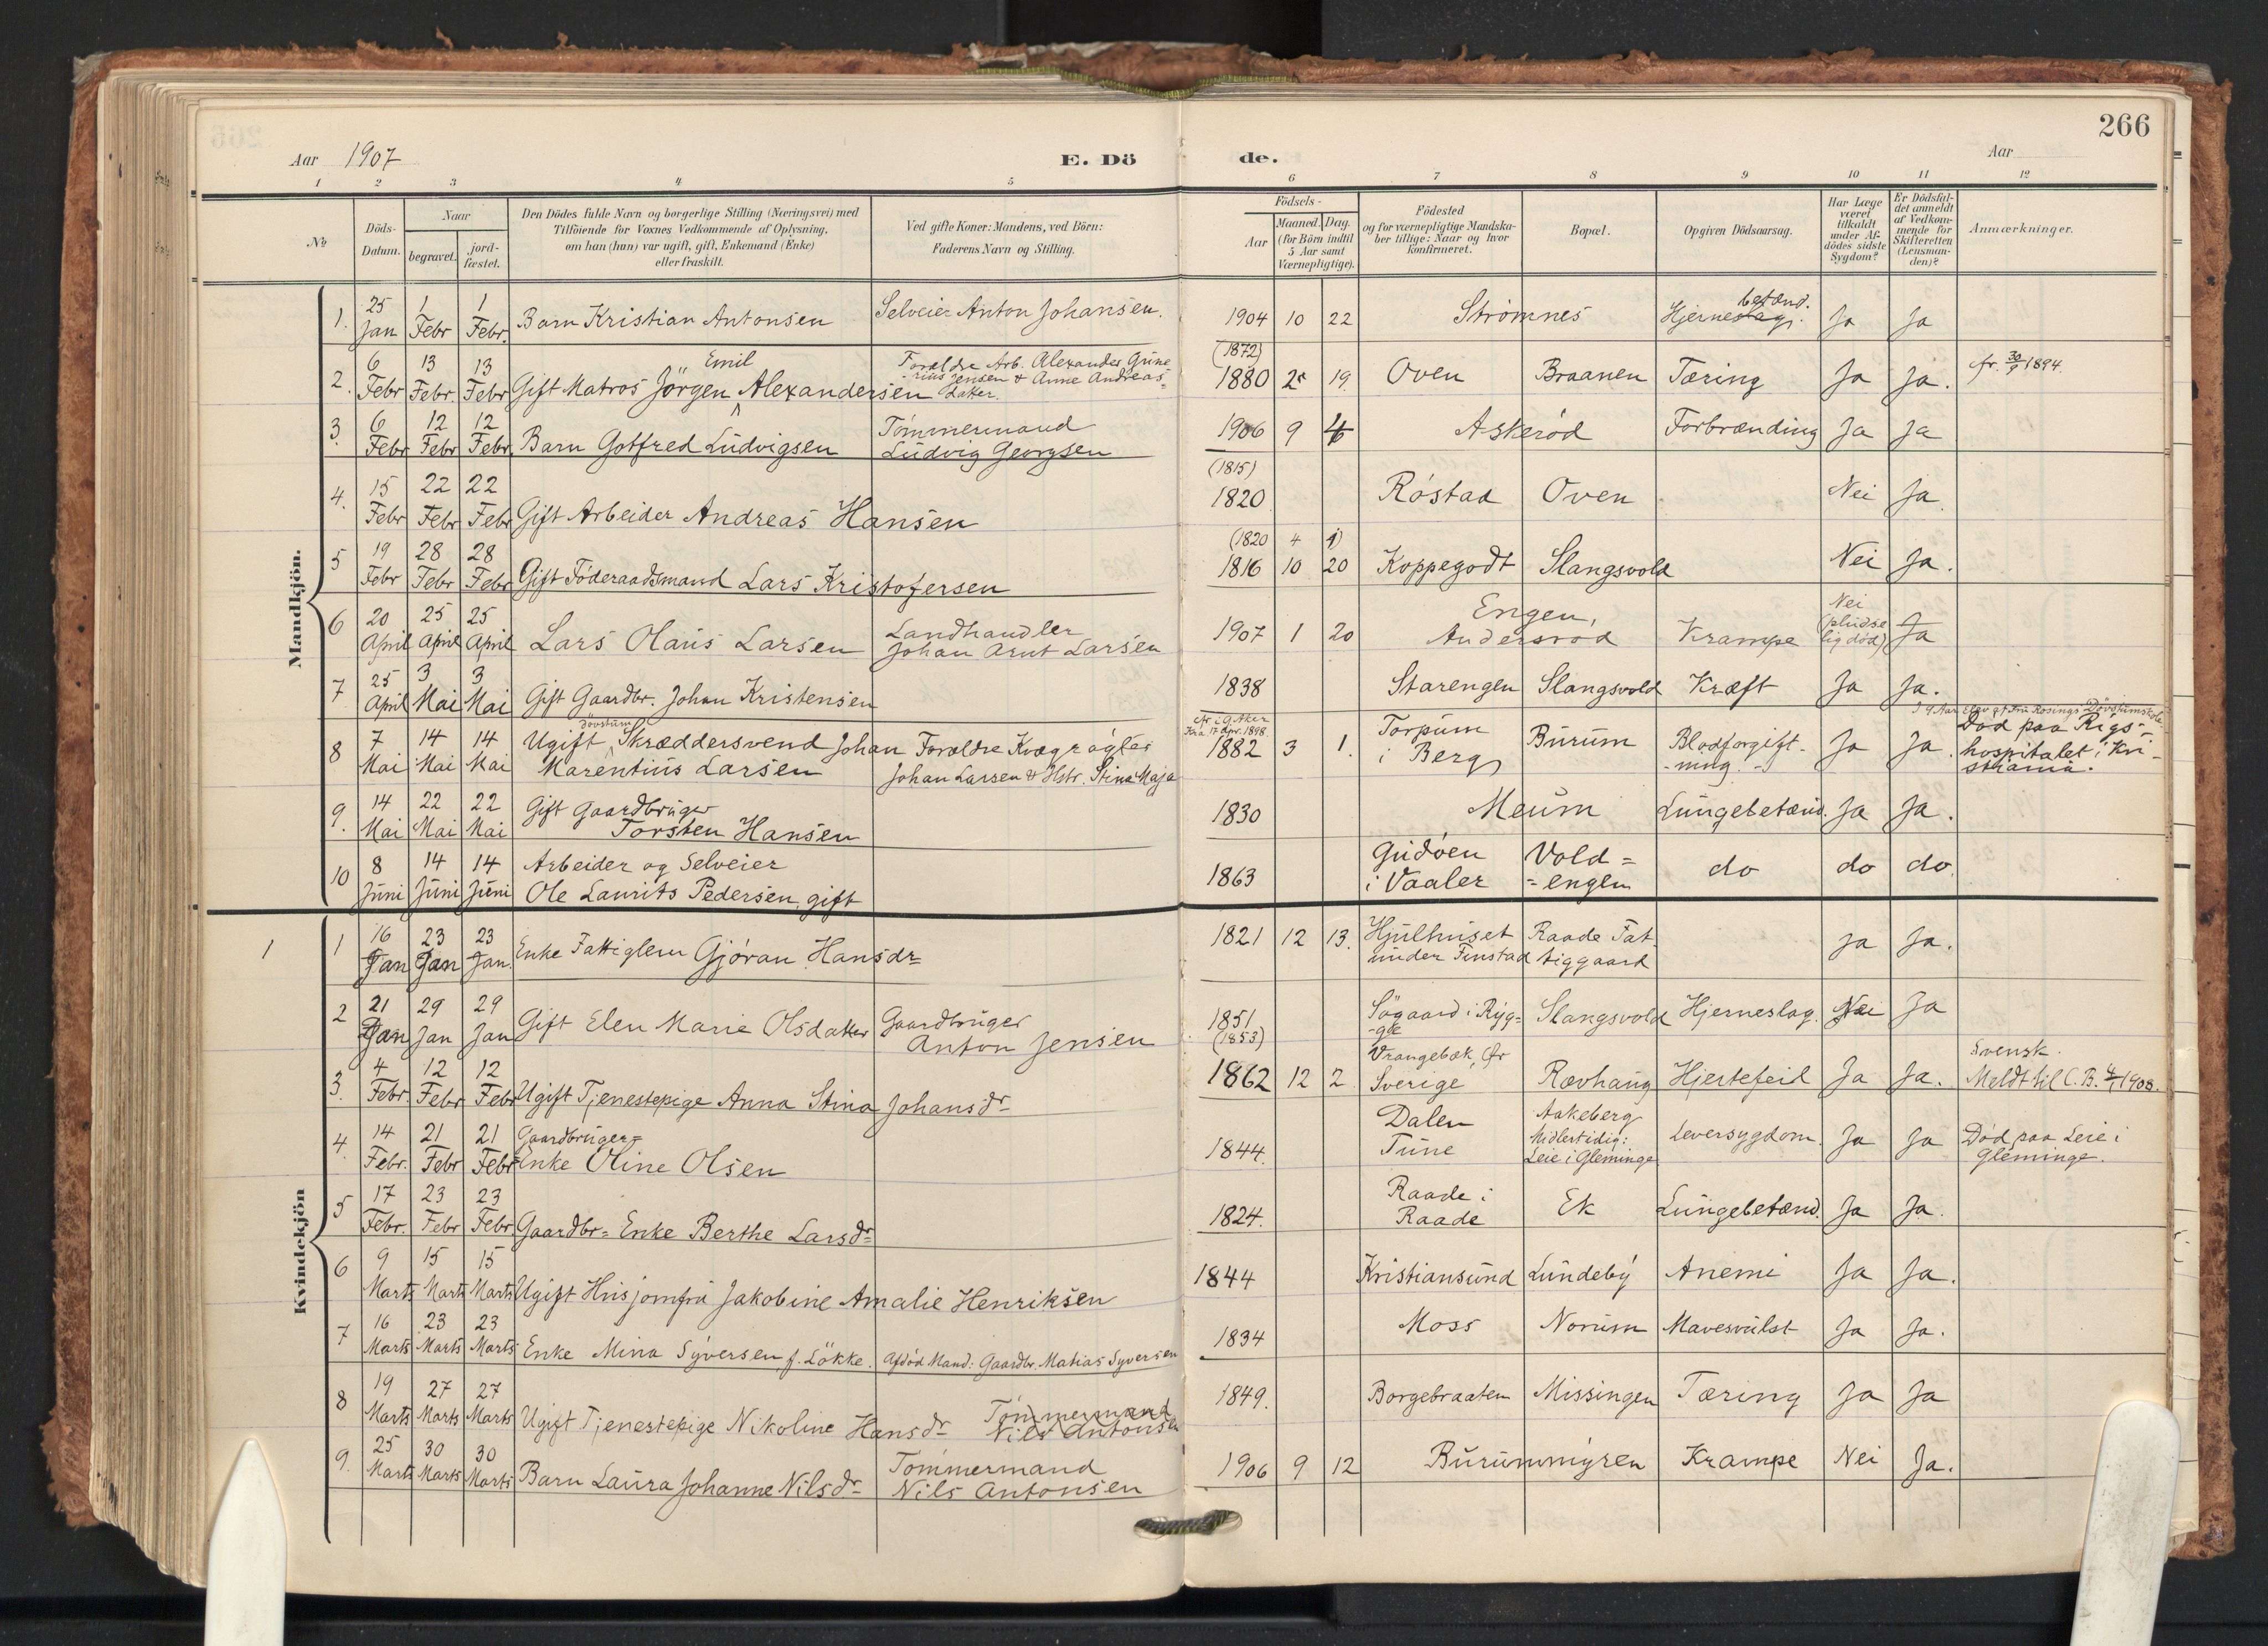 266
Aar 1907
E. Dö de.
Aar
1 2 3 4 5 6 7 8 9 10 11 12
№
Döds-Datum.
Naar
begravet.
jord-fæstet.
Den Dödes fulde Navn og borgerlige Stilling (Næringsvei) med
Tilföiende for Voxnes Vedkommende af Oplysning,
om han (hun) var ugift, gift, Enkemand (Enke)
eller fraskilt.
Ved gifte Koner: Mandens, ved Börn:
Faderens Navn og Stilling.
Födsels-
Aar
Maaned. Dag.
(for Börn indtil
5 Aar samt
Værnepligtige).
Födested
og for værnepligtige Mandska-
ber tillige: Naar og hvor
konfirmeret.
Bopæl.
Opgiven Dödsaarsag.
Har Læge
været
tilkaldt
under Af-
dödes sidste
Sygdom?
Er Dödsfal-
det anmeldt
af Vedkom-
mende for
Skifteretten
(Lensman-
den)?
Anmærkninger.
Mandkjön.
1. 25 Jan 1 Febr 1 Febr. Barn Kristian Antonsen Selveier Anton Johansen. 1904 10 22 Strømnes Hjerneslag. betænd. Ja Ja
2. 6 Febr 13 Febr. 13 Febr Gift Matros Jörgen Emil Alexandersen Forældre Arb. Alexander Grine
rius Jensen & Anne Andreas=
datter. (1872) 1880 2 19 Oven Braanen Tæring Ja Ja. fr. 30/9 1894.
3. 6 Febr 12 Febr 12 Febr. Barn Gotfred Ludvigsen Tömmermand
Ludvig Georgsen 1906 9 4 Askeröd Forbrænding Ja Ja
4. 15 Febr 22 Febr 22 Febr Gift Arbeider Andreas Hansen (1815) 1820 Röstad Oven Nei Ja.
5 19 Febr 28 Febr 28 Febr Gift Föderaadsmand Lars Kristofersen (1820 4 1) 1816 10 20 Koppegodt Slangsvold Nei Ja.
6 20 April 25 April 25 April Lars Olaus Larsen Landhandler
Johan Arnt Larsen 1907 1 20 Engen,
Andersrød Krampe Nei
(pludse
lig död) Ja
7 25 April 3 Mai 3 Mai Gift Gaardbr. Johan Kristensen 1838 Starengen Slangsvold Kræft Ja Ja.
8 7 Mai 14 Mai 14 Mai Ugift dövstum Skræddersvend Johan
Marentius Larsen Forældre Kvægrögter
Johan Larsen & Hstr. Stina Maja fr. i G. Aker
Kra 17 Apr. 1898. 1882 3 1. Torpum
i Berg Burum Blodforgift-
ning. Ja Ja. I 9 Aar Elev af Fru Rosings Dövstumskole
Död paa Rigs-
hospitalet i Kri-
stiania.
9. 14 Mai 22 Mai 22 Mai Gift Gaardbruger
Torsten Hansen 1830 Meum Lungebetænd. Ja Ja.
10 8 Juni 14 Juni 14 Juni Arbeider og Selveier
Ole Laurits Pedersen, gift 1863 Gudöen
i Vaaler Vold=
=engen do do do.
Kvindekjön
1
1 16 Jan 23 Jan 23 Jan. Enke Fattiglem Gjöran Hansdr 1821 12 13. Hjulhuset
under Finstad Raade Fat
tiggaard Ja Ja.
2 21 Jan 29 Jan 29 Jan Gift Elen Marie Olsdatter Gaardbruger
Anton Jensen 1851 (1853) Sögaard i Ryg=
ge Slangsvold Hjerneslag. Nei Ja
3. 4 Febr. 12 Febr 12 Febr Ugift Tjenestepige Anna Stina Johansdr 1862 12 2 Vrangebæk, fr
Sverige Rævhaug Hjertefeil Ja Ja. Svensk.
Meldt til C.B. 4/1 1908.
4. 14 Febr. 21 Febr 21 Febr Gaardbruger=
Enke Oline Olsen 1844. Dalen
Tune Aakeberg
Midlertidig:
Leie i Gleminge Leversygdom. Ja Ja Död paa Leie i
Gleminge.
5 17 Febr. 23 Febr 23 Febr. Gaardbr= Enke Berthe Larsdr 1824. Raade i
Raade Ek Lungebetænd. Ja Ja.
6 9 Marts 15 Marts 15 Marts Ugift Husjomfru Jakobine Amalie Henriksen 1844 Kristiansund Lundeby Anemi Ja Ja.
7 16 Marts 23 Marts 23 Marts Enke Mina Syversen, f. Lökke. Afdöd Mand: Gaardbr. Matias Syversen 1834 Moss Norum Mavesvulst Ja Ja.
8 19 Marts 27 Marts 27 Marts Ugift Tjenestepige Nikoline Hansdr Tömmermand
Nils Antonsen 1849. Borgebraaten Missingen Tæring Ja Ja
9. 25 Marts 30 Marts 30 Marts Barn Laura Johanne Nilsdr Tömmermand
Nils Antonsen 1906 9 12 Burummyren Krampe Nei Ja.